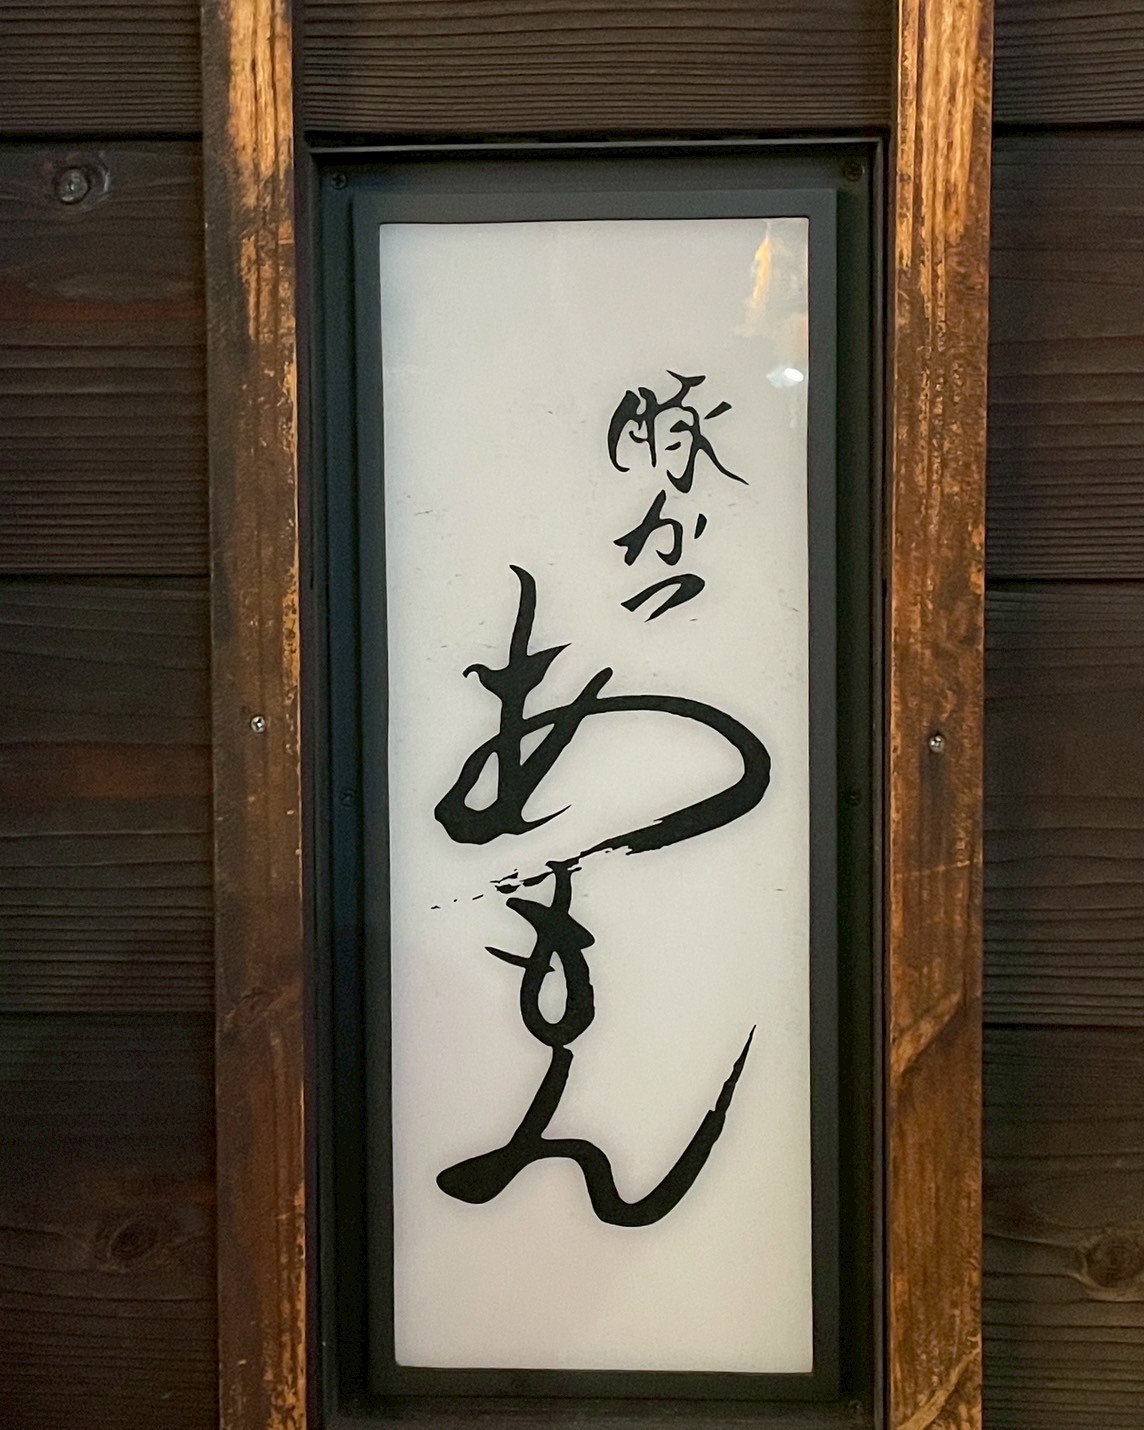 豚かつ
あもん